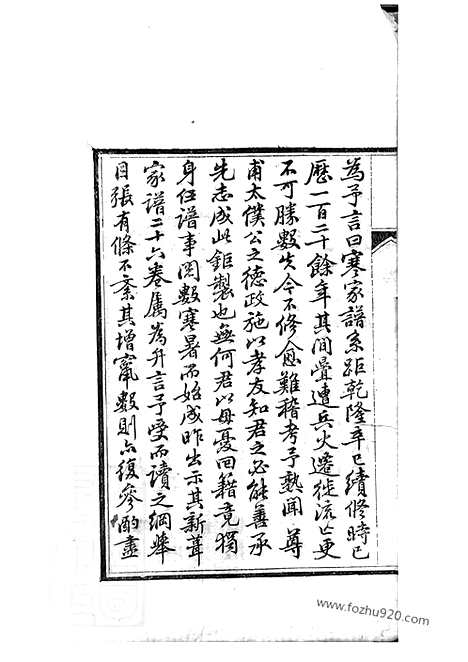 為予言曰寒家譜系距乾隆辛巳續修時已
歷一百二十餘年其間疊遭兵火遷徙流亡更
不可勝數失今不修愈難稽考予熟聞 尊
甫太僕公之德政施以孝友知君之必能善承
先志成此鉅製也無何君以母憂回籍竟獨
身任譜事閱數寒暑而始成昨出示其新葺
家譜二十六卷屬為弁言予受而讀之綱舉
目張有條不紊其增竄數則亦復參酌盡
www.fozhu920.com